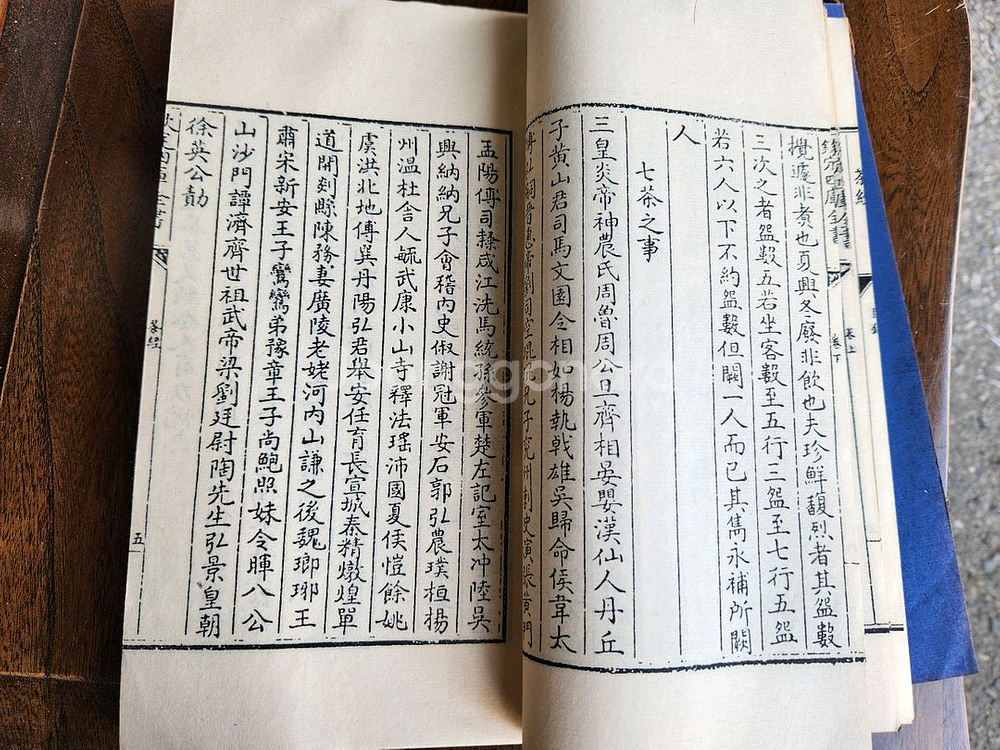 茶經
目錄
卷上
卷下
攪遽非煮也夏興冬廢非飲也夫珍鮮馥烈者其盌數
三次之者盌數五若坐客數至五行三盌至七行五盌
若六人以下不約盌數但闕一人而已其雋永補所闕
人
七茶之事
三皇炎帝神農氏周魯周公旦齊相晏嬰漢仙人丹丘
子黃山君司馬文園令相如楊執戟雄吳歸命侯韋太
孟陽傅司隸咸江洗馬統孫參軍楚左記室太沖陸吳
興納納兄子會稽內史俶謝冠軍安石郭弘農璞桓楊
州溫杜舍人毓武康小山寺釋法瑤沛國夏侯愷餘姚
虞洪北地傅巽丹陽弘君舉安任育長宣城秦精燉煌單
道開剡縣陳務妻廣陵老姥河內山謙之後魏瑯琊王
肅宋新安王子鸞鸞弟豫章王子尚鮑照妹令暉八公
山沙門譚濟齊世祖武帝梁劉廷尉陶先生弘景皇朝
徐英公勣
茶經
五